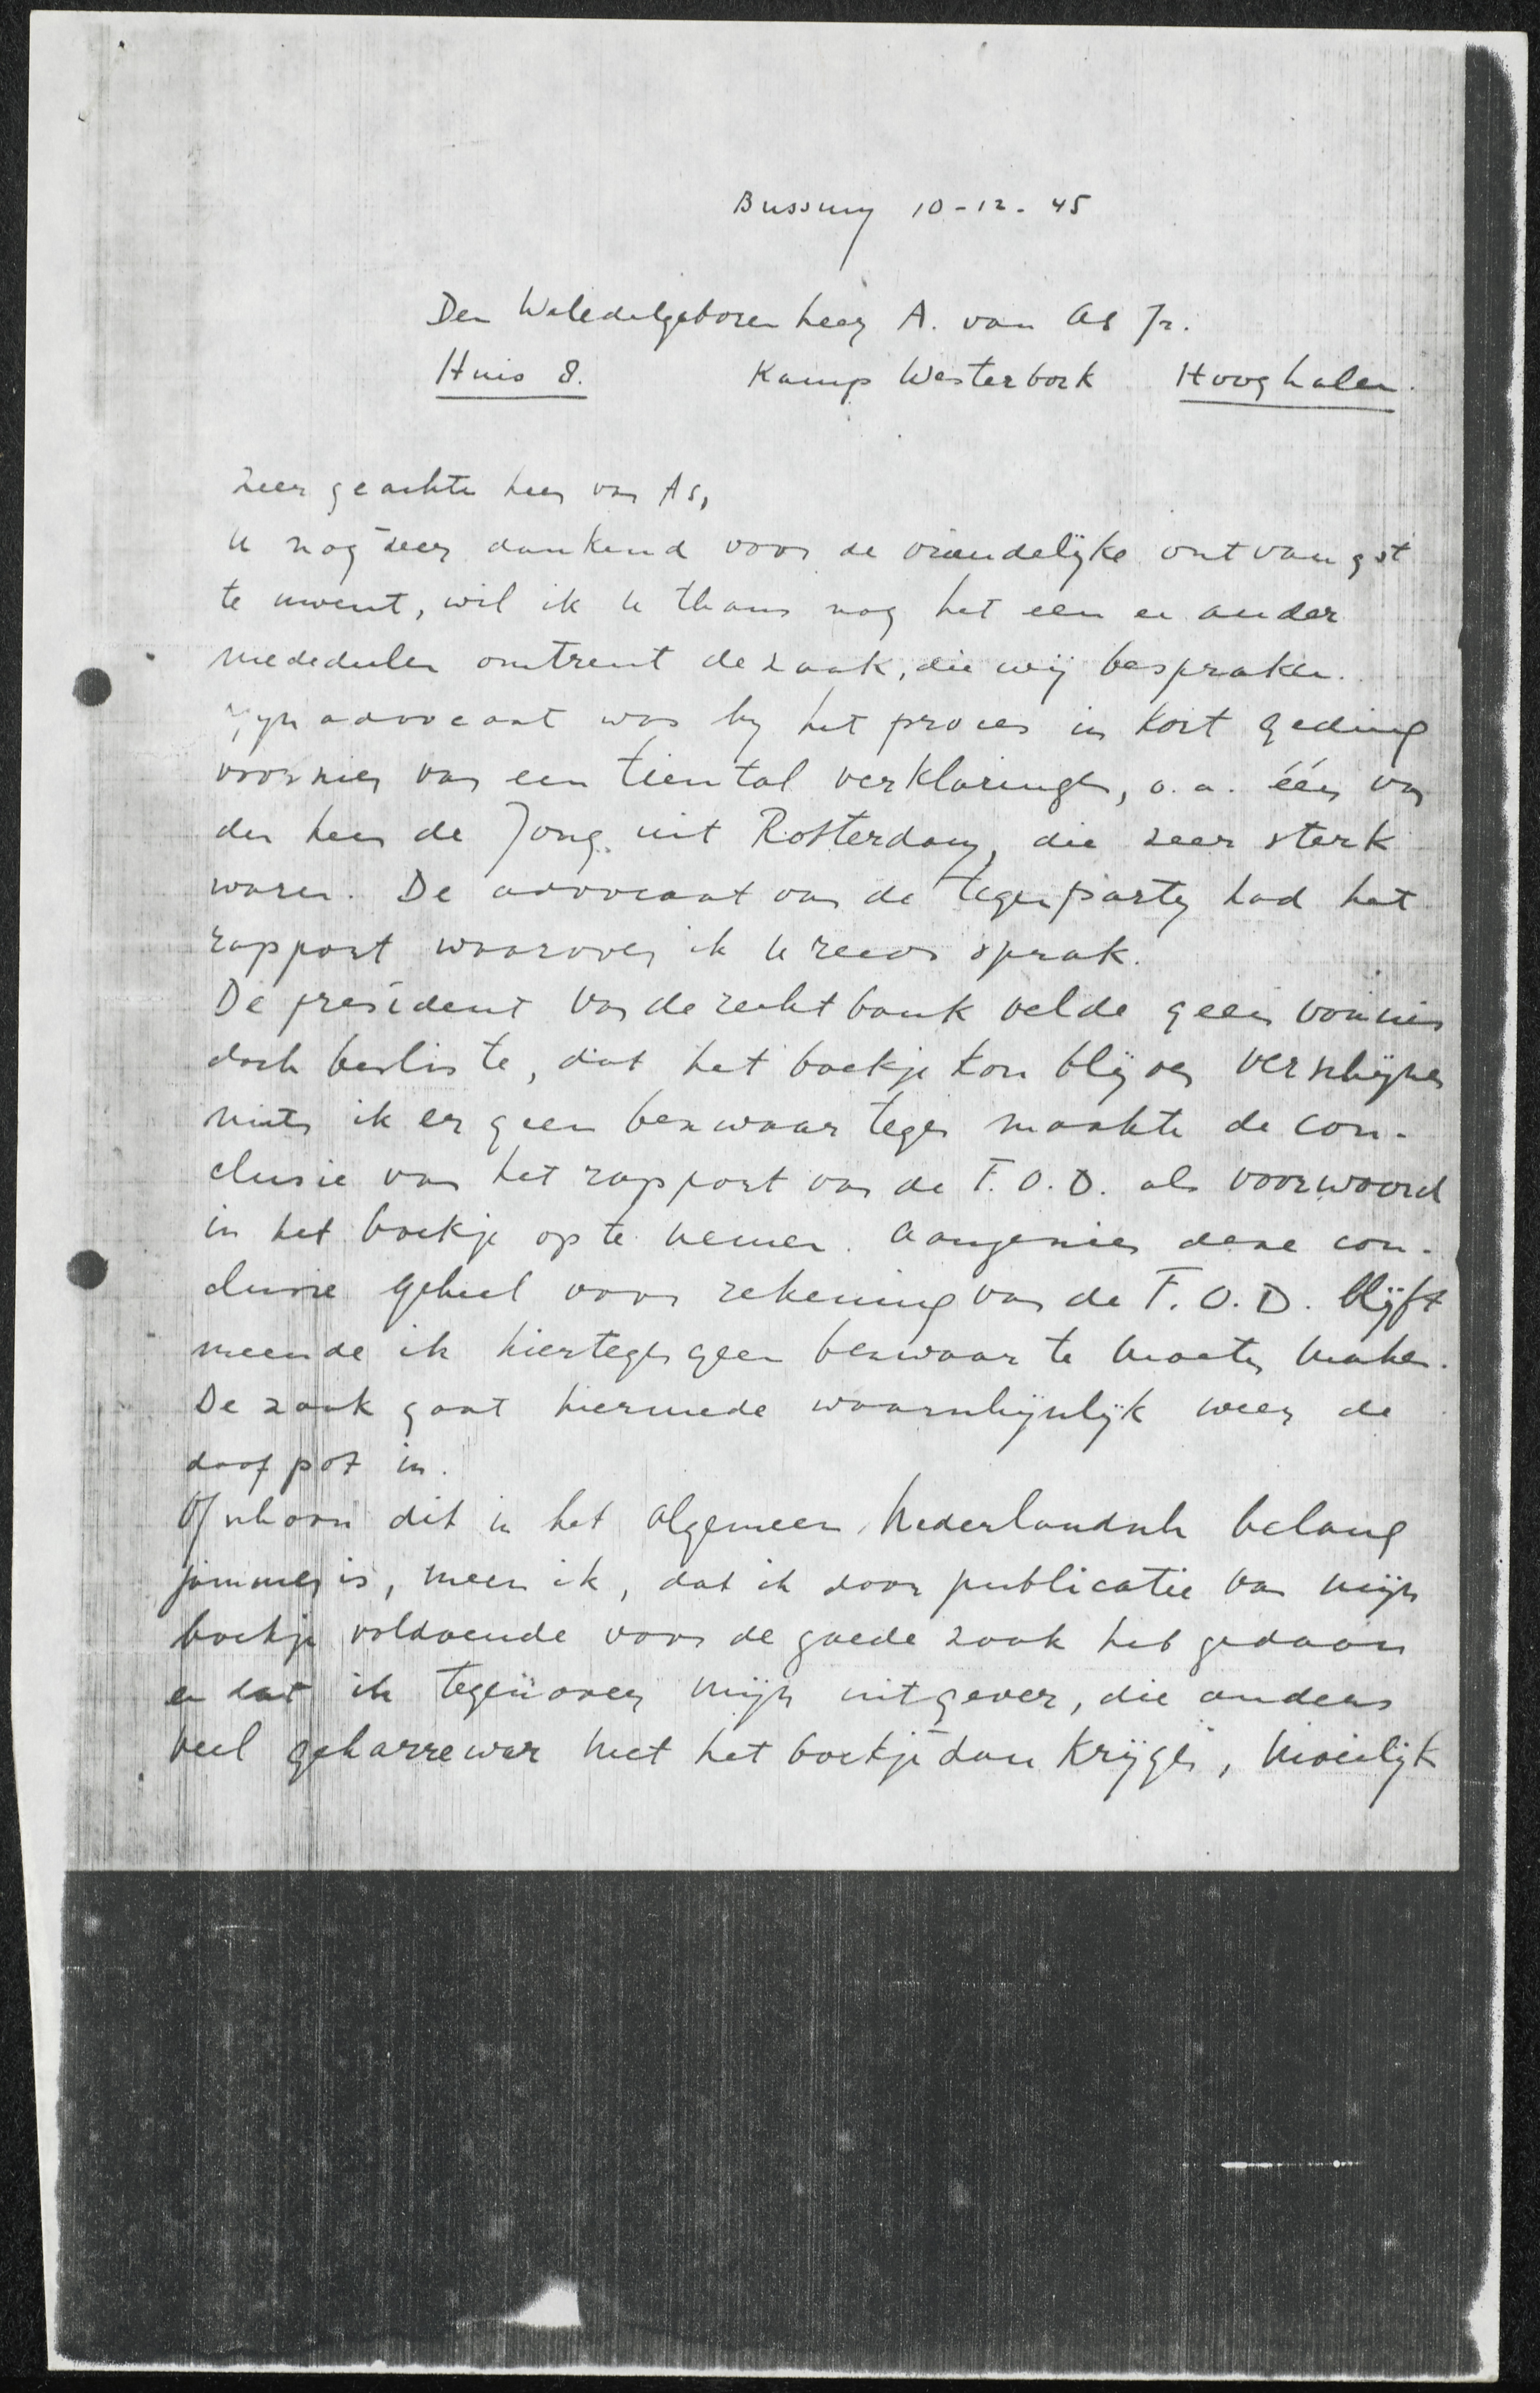 Bussum 10-12-45
Den Weledelgeboren heer A. van As Jr.
Huis 8. Kamp Westerbork Hooghalen.
Zeer geachte heer van As,
U nog zeer dankend voor de vriendelijke ontvangst
te uwent, wil ik U thans nog het een en ander
mededeelen omtrent de zaak, die wij bespraken.
Mijn advocaat was bij het proces in Kort geding
voorzien van een tiental verklaringen, o.a. één van
den heer de Jong uit Rotterdam, die zeer sterk
waren. De advocaat van de tegenpartij had het
rapport waarover ik U reeds sprak.
De president van de rechtbank velde geen vonnis
doch besliste, dat het boekje kon blijven verschijnen
mits ik er geen bezwaar tegen maakte de con-
clusie van het rapport van de F.O.D. als voorwoord
in het boekje op te nemen. Aangezien deze con-
clusie geheel voor rekening van de F.O.D. blijft
meende ik hiertegen geen bezwaar te moeten maken.
De zaak gaat hiermede waarschijnlijk weer de
doofpot in.
Ofschoon dit in het algemeen Nederlandsch belang
jammer is, meen ik, dat ik door publicatie van mijn
boekje voldoende voor de goede zaak heb gedaan
en dat ik tegenover mijn uitgever, die anders
veel geharrewar met het boekje zou krijgen, moeilijk